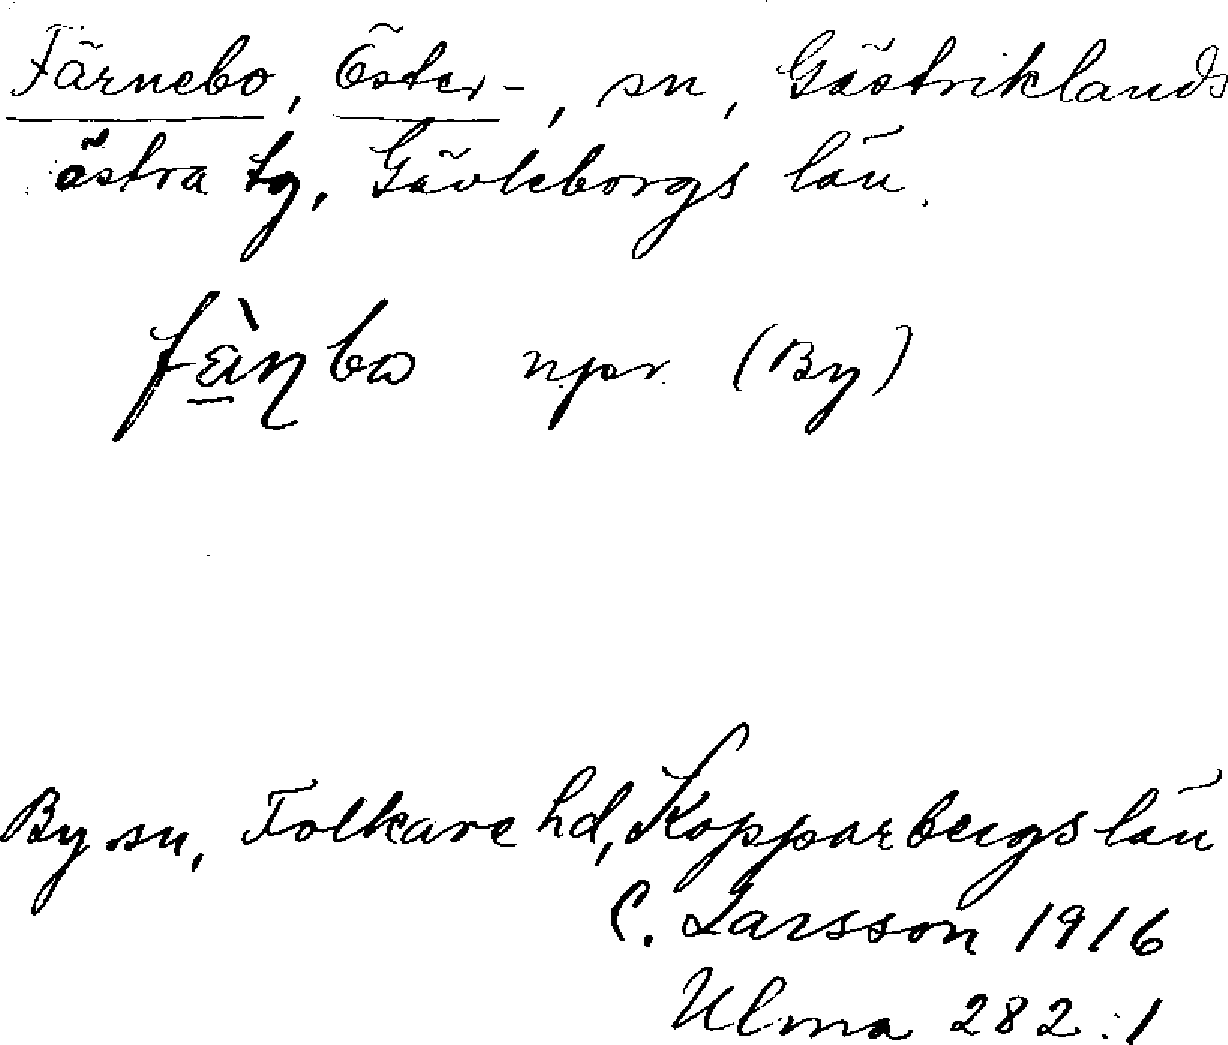 Färnebo, Öster-, sn, Gästriklands
östra tg, Gävleborgs län.
fæ̀ɳbɷ npr. (By)
By sn, Folkare hd, Kopparbergs län
C. Larsson 1916
Ulma 282:1